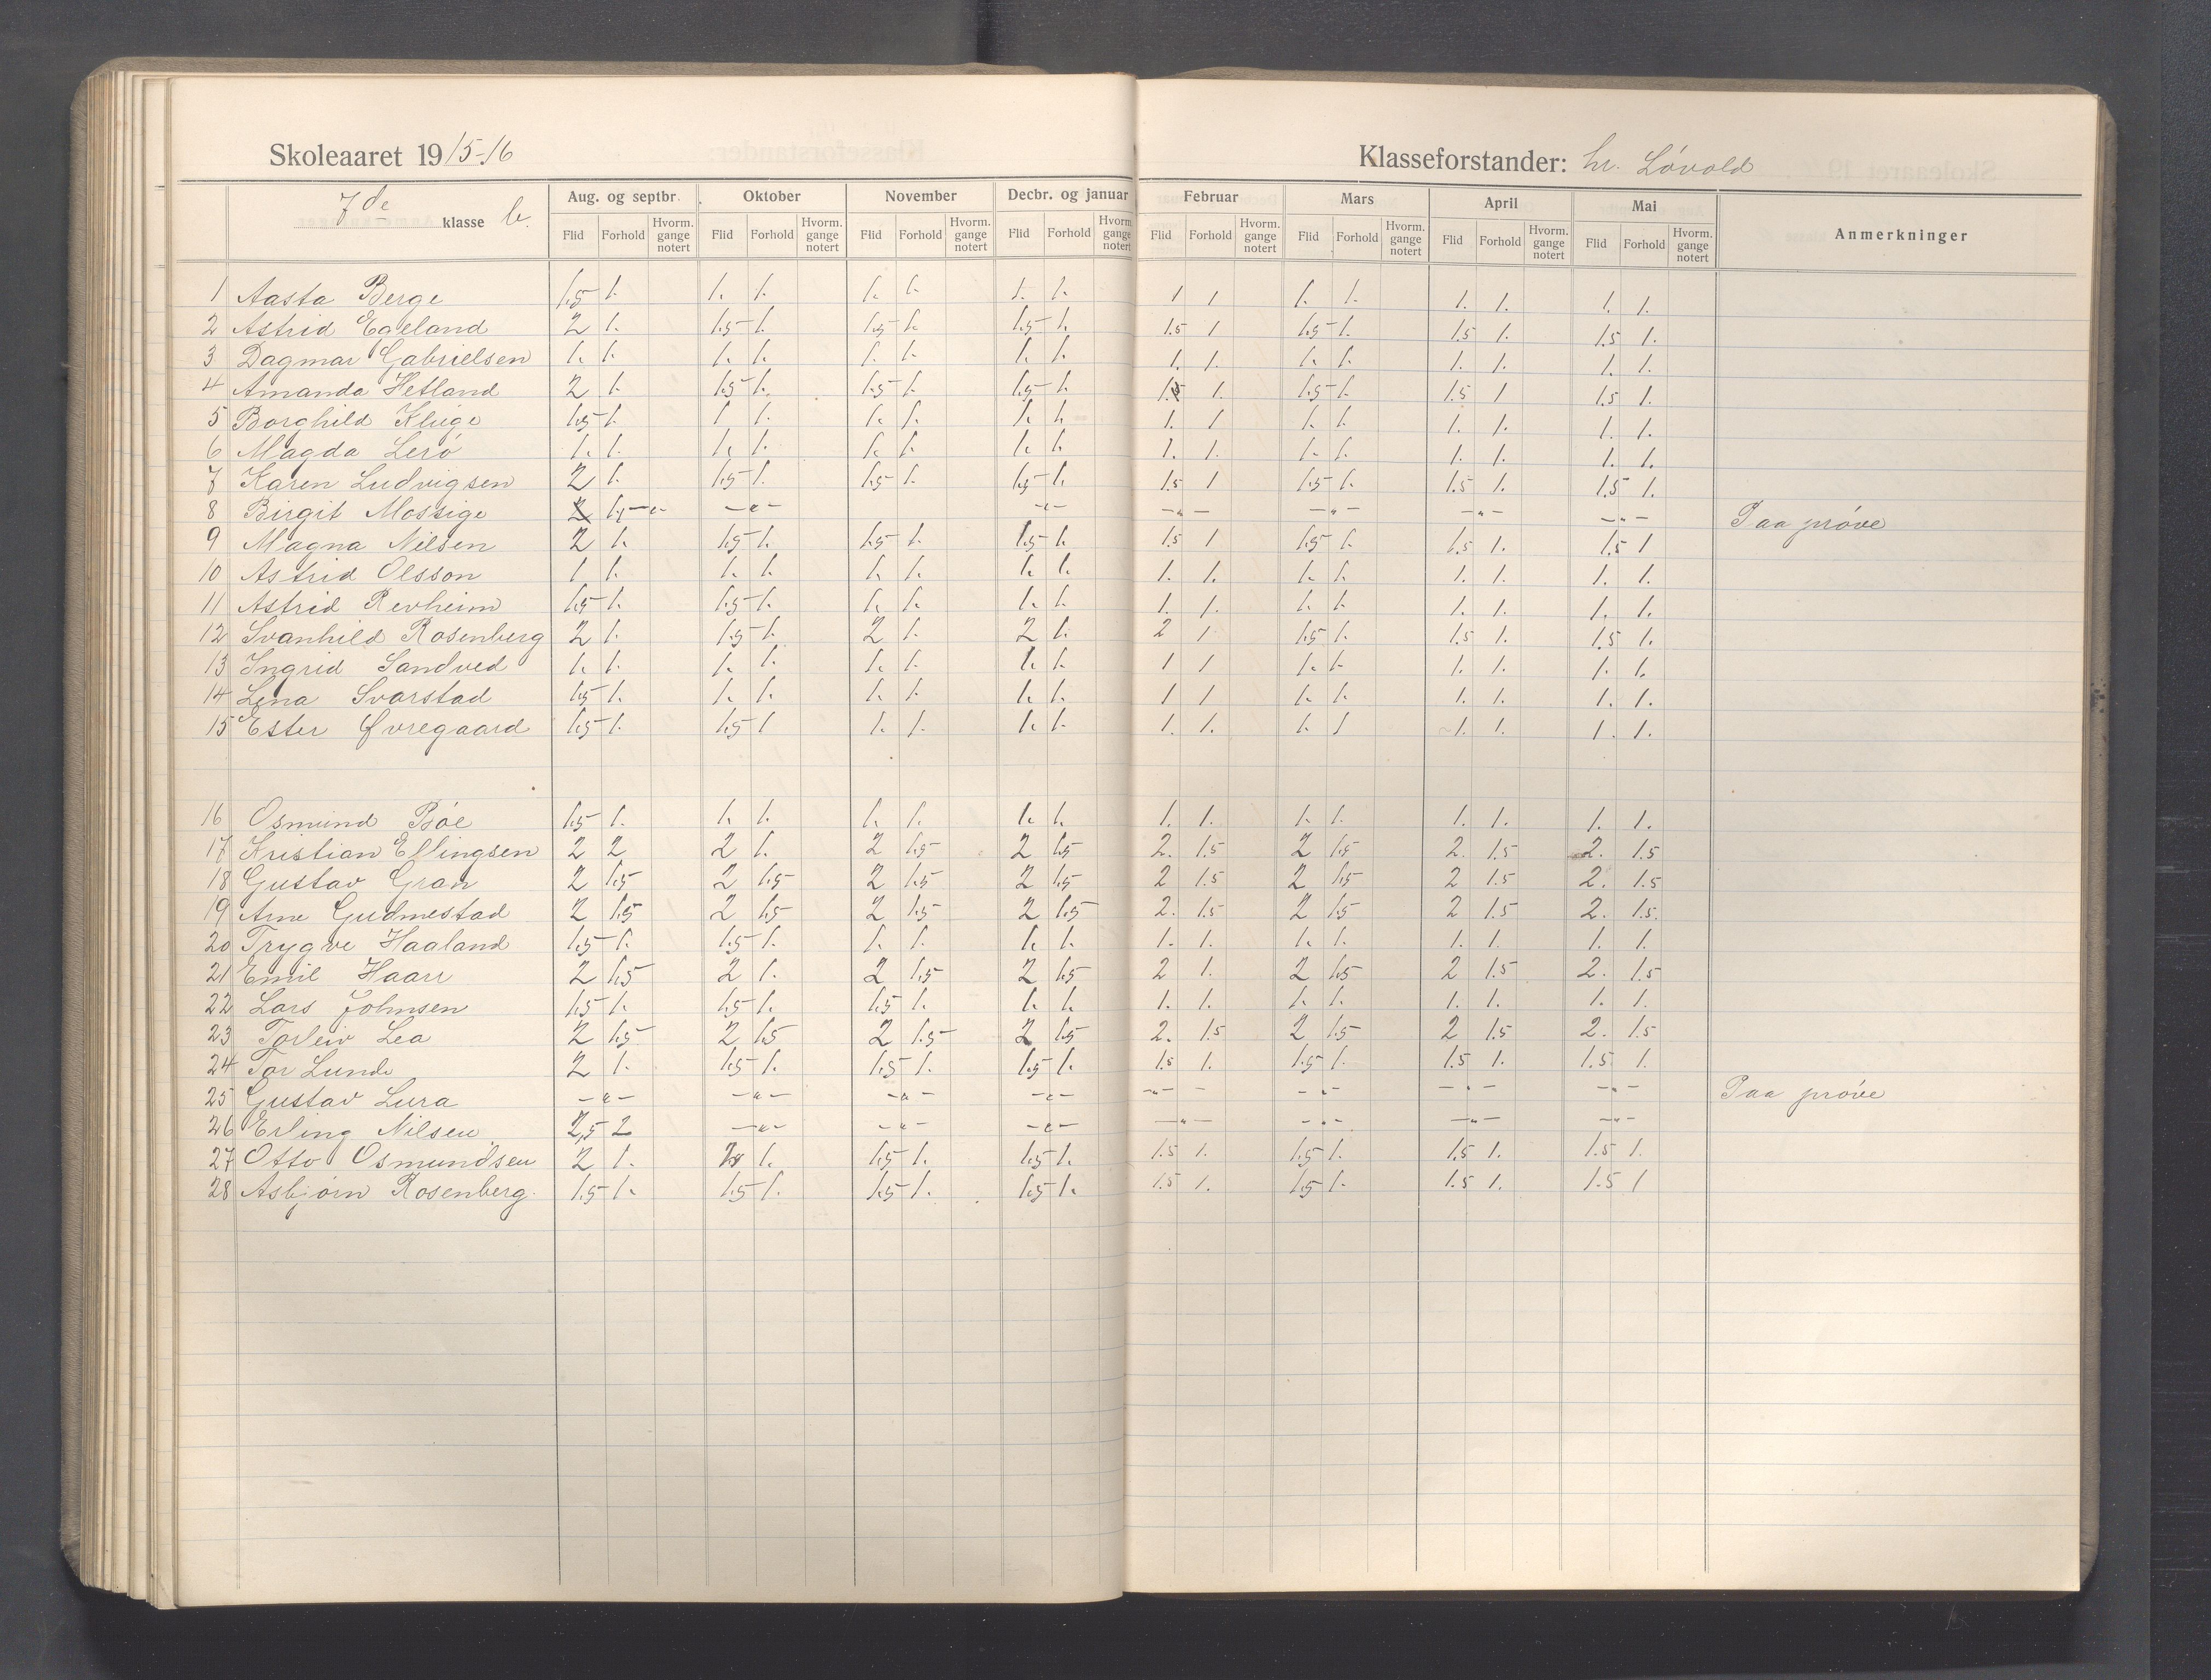 Skoleaaret 1915-16 Klasseforstander: hr. Lövold
7de klasse b. Aug. og septbr. Oktober November Decbr. og januar Februar Mars April Mai Anmerkninger
Flid Forhold Hvorm. gange notert Flid Forhold Hvorm. gange notert Flid Forhold Hvorm. gange notert Flid Forhold Hvorm. gange notert Flid Forhold Hvorm. gange notert Flid Forhold Hvorm. gange notert Flid Forhold Hvorm. gange notert Flid Forhold Hvorm. gange notert
1 Aasta Berge 1.5 1. 1. 1. 1. 1. 1. 1. 1 1 1. 1. 1. 1. 1. 1.
2 Astrid Egeland 2 1. 1.5 1. 1.5 1. 1.5 1. 1.5 1 1.5 1. 1.5 1. 1.5 1.
3 Dagmar Gabrielsen 1. 1. 1. 1. 1. 1. 1. 1. 1. 1. 1. 1. 1. 1. 1. 1.
4 Amanda Hetland 2 1. 1.5 1. 1.5 1. 1.5 1. 1.5 1. 1.5 1. 1.5 1 1.5 1.
5 Borghild Kluge 1.5 1. 1 1. 1. 1. 1. 1. 1. 1 1. 1. 1. 1. 1. 1.
6 Magda Lerö 1. 1. 1. 1. 1. 1. 1. 1. 1. 1. 1. 1. 1. 1. 1. 1.
7 Karen Ludvigsen 2 1. 1.5 1. 1.5 1. 1.5 1. 1.5 1 1.5 1. 1.5 1. 1.5 1.
8 Birgit Mossige 2 1. -"- -"- -"- -"- -"- -"- -"- Paa pröve
9 Magna Nilsen 2 1. 1.5 1. 1.5 1. 1.5 1. 1.5 1 1.5 1. 1.5 1. 1.5 1
10 Astrid Olsson 1 1. 1. 1. 1. 1. 1. 1. 1. 1. 1. 1. 1. 1. 1. 1.
11 Astrid Revheim 1.5 1. 1.5 1. 1. 1. 1. 1. 1. 1. 1. 1. 1. 1. 1. 1.
12 Svanhild Rosenberg 2 1. 1.5 1. 2 1. 2 1. 2 1 1.5 1. 1.5 1. 1.5 1.
13 Ingrid Sandved 1. 1. 1. 1. 1. 1. 1. 1. 1 1 1. 1. 1. 1. 1. 1.
14 Lena Svarstad 1.5 1. 1. 1. 1. 1. 1. 1. 1 1 1. 1. 1. 1. 1. 1.
15 Ester Øvregaard 1.5 1. 1.5 1 1. 1. 1. 1. 1. 1. 1. 1 1. 1. 1. 1.
16 Osmund Böe 1.5 1. 1. 1. 1. 1. 1. 1. 1. 1. 1. 1. 1. 1. 1. 1.
17 Kristian Ellingsen 2 2 2 1. 2 1.5 2 1.5 2. 1.5 2 1.5 2. 1.5 2. 1.5
18 Gustav Gran 2 1.5 2 1.5 2 1.5 2 1.5 2 1.5 2 1.5 2 1.5 2. 1.5
19 Arne Gudmestad 2 1.5 2 1.5 2 1.5 2 1.5 2. 1.5 2 1.5 2 1.5 2. 1.5.
20 Trygve Haaland 1.5 1. 1.5 1. 1. 1. 1. 1. 1. 1. 1. 1. 1. 1. 1. 1.
21 Emil Haarr 2 1.5 2 1. 2 1.5 2 1.5 2 1. 2 1.5 2 1.5 2. 1.5
22 Lars Johnsen 1.5 1. 1.5 1. 1.5 1. 1. 1. 1. 1. 1. 1. 1. 1. 1. 1.
23 Torleiv Lea 2 1.5 2 1.5 2 1.5 2 1.5 2. 1.5 2 1.5 2 1.5 2. 1.5
24 Tor Lunde 2 1. 1.5 1. 1.5 1. 1.5 1. 1.5 1. 1.5 1. 1.5 1. 1.5 1.
25 Gustav Lura -"- -"- -"- -"- -"- - -"- -"- -"- Paa pröve
26 Erling Nilsen 2,5 2 -"- -"- -"- -"- -"- -"- -"-
27 Otto Osmundsen 2 1. 1. 1.5 1. 1.5 1. 1.5 1. 1.5 1. 1.5 1. 1.5 1.
28 Asbjörn Rosenberg. 1.5 1. 1.5 1. 1.5 1. 1.5 1. 1.5 1. 1.5 1. 1.5 1. 1.5 1